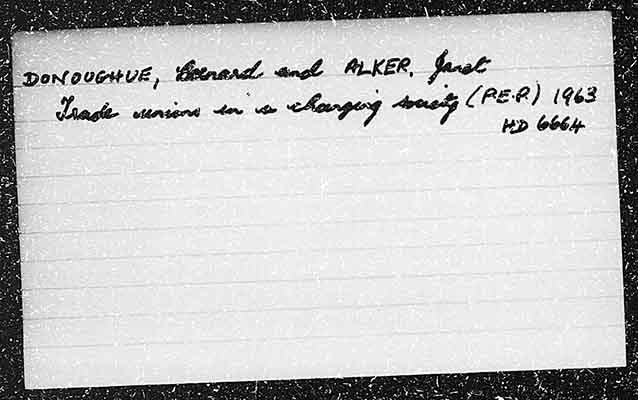 DONOUGHUE, Bernard and ALKER, Janet
Trade unions in a changing society (P.E.P.) 1963
HD 6664